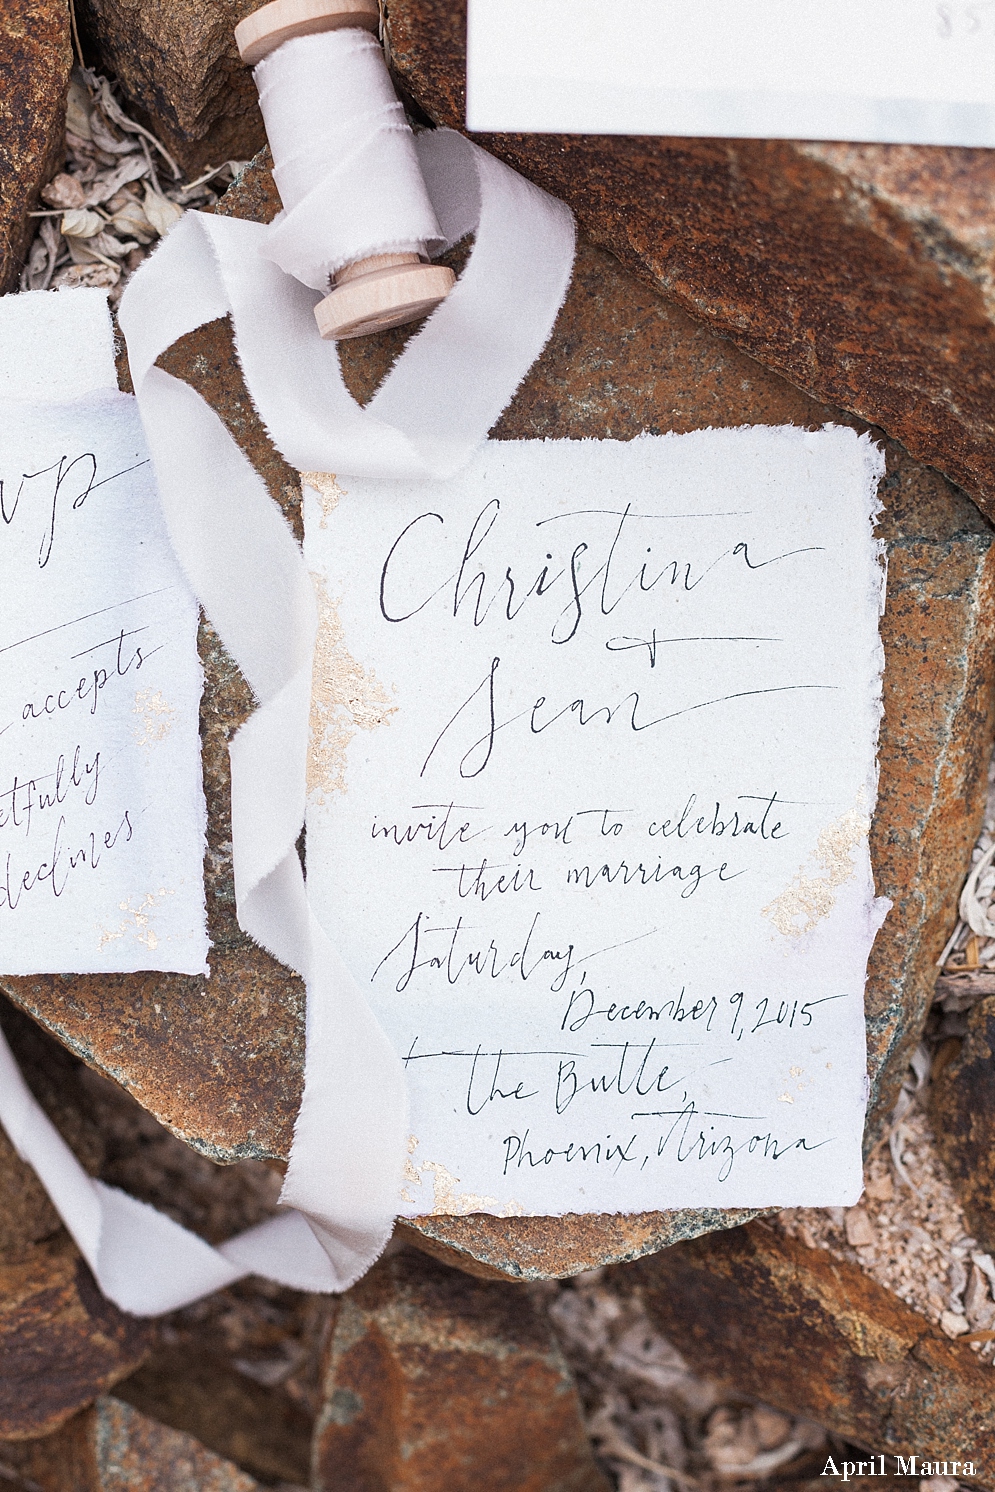 vp
accepts
etfully
declines
Christina
+
Sean
invite you to celebrate
their marriage
Saturday,
December 9, 2015
the Butte,
Phoenix, Arizona
April Maura